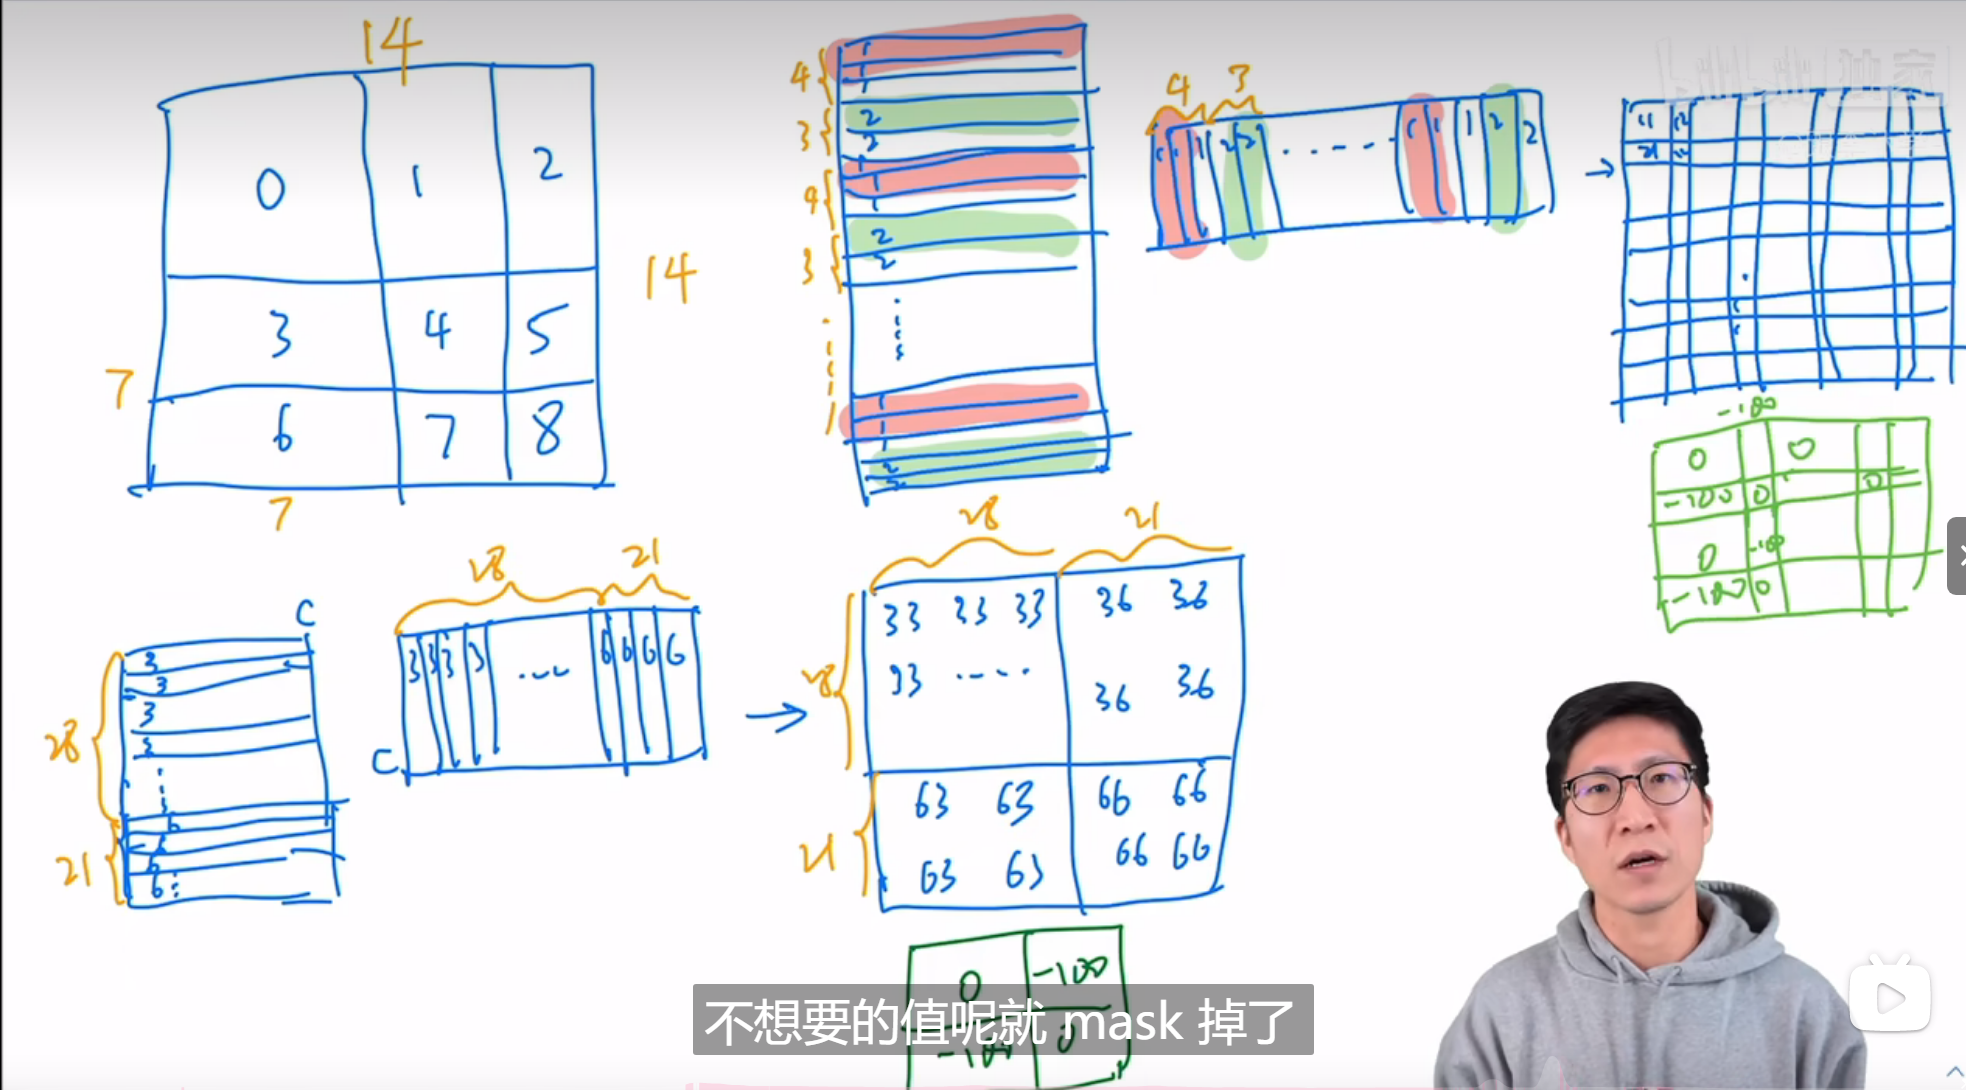 14
0 1 2
3 4 5
6 7 8
14
7
7
4
3
4
3
1
1
1
2
2
1
1
1
2
2
1
1
1
2
2
4 3
1 1 1 2 2 ..... 1 1 1 2 2
11 12
21
-100
0 0
-100 0 0
0 -100
-100 0
C
28
21
3
3
3
3
6
6
6
6
28 21
3 3 3 3 ... 6 6 6 6
C
28 21
28
21
33 33 33 36 36
93 .... 36 36
63 63 66 66
63 63 66 66
0 -100
-100 0
不想要的值呢就 mask 掉了